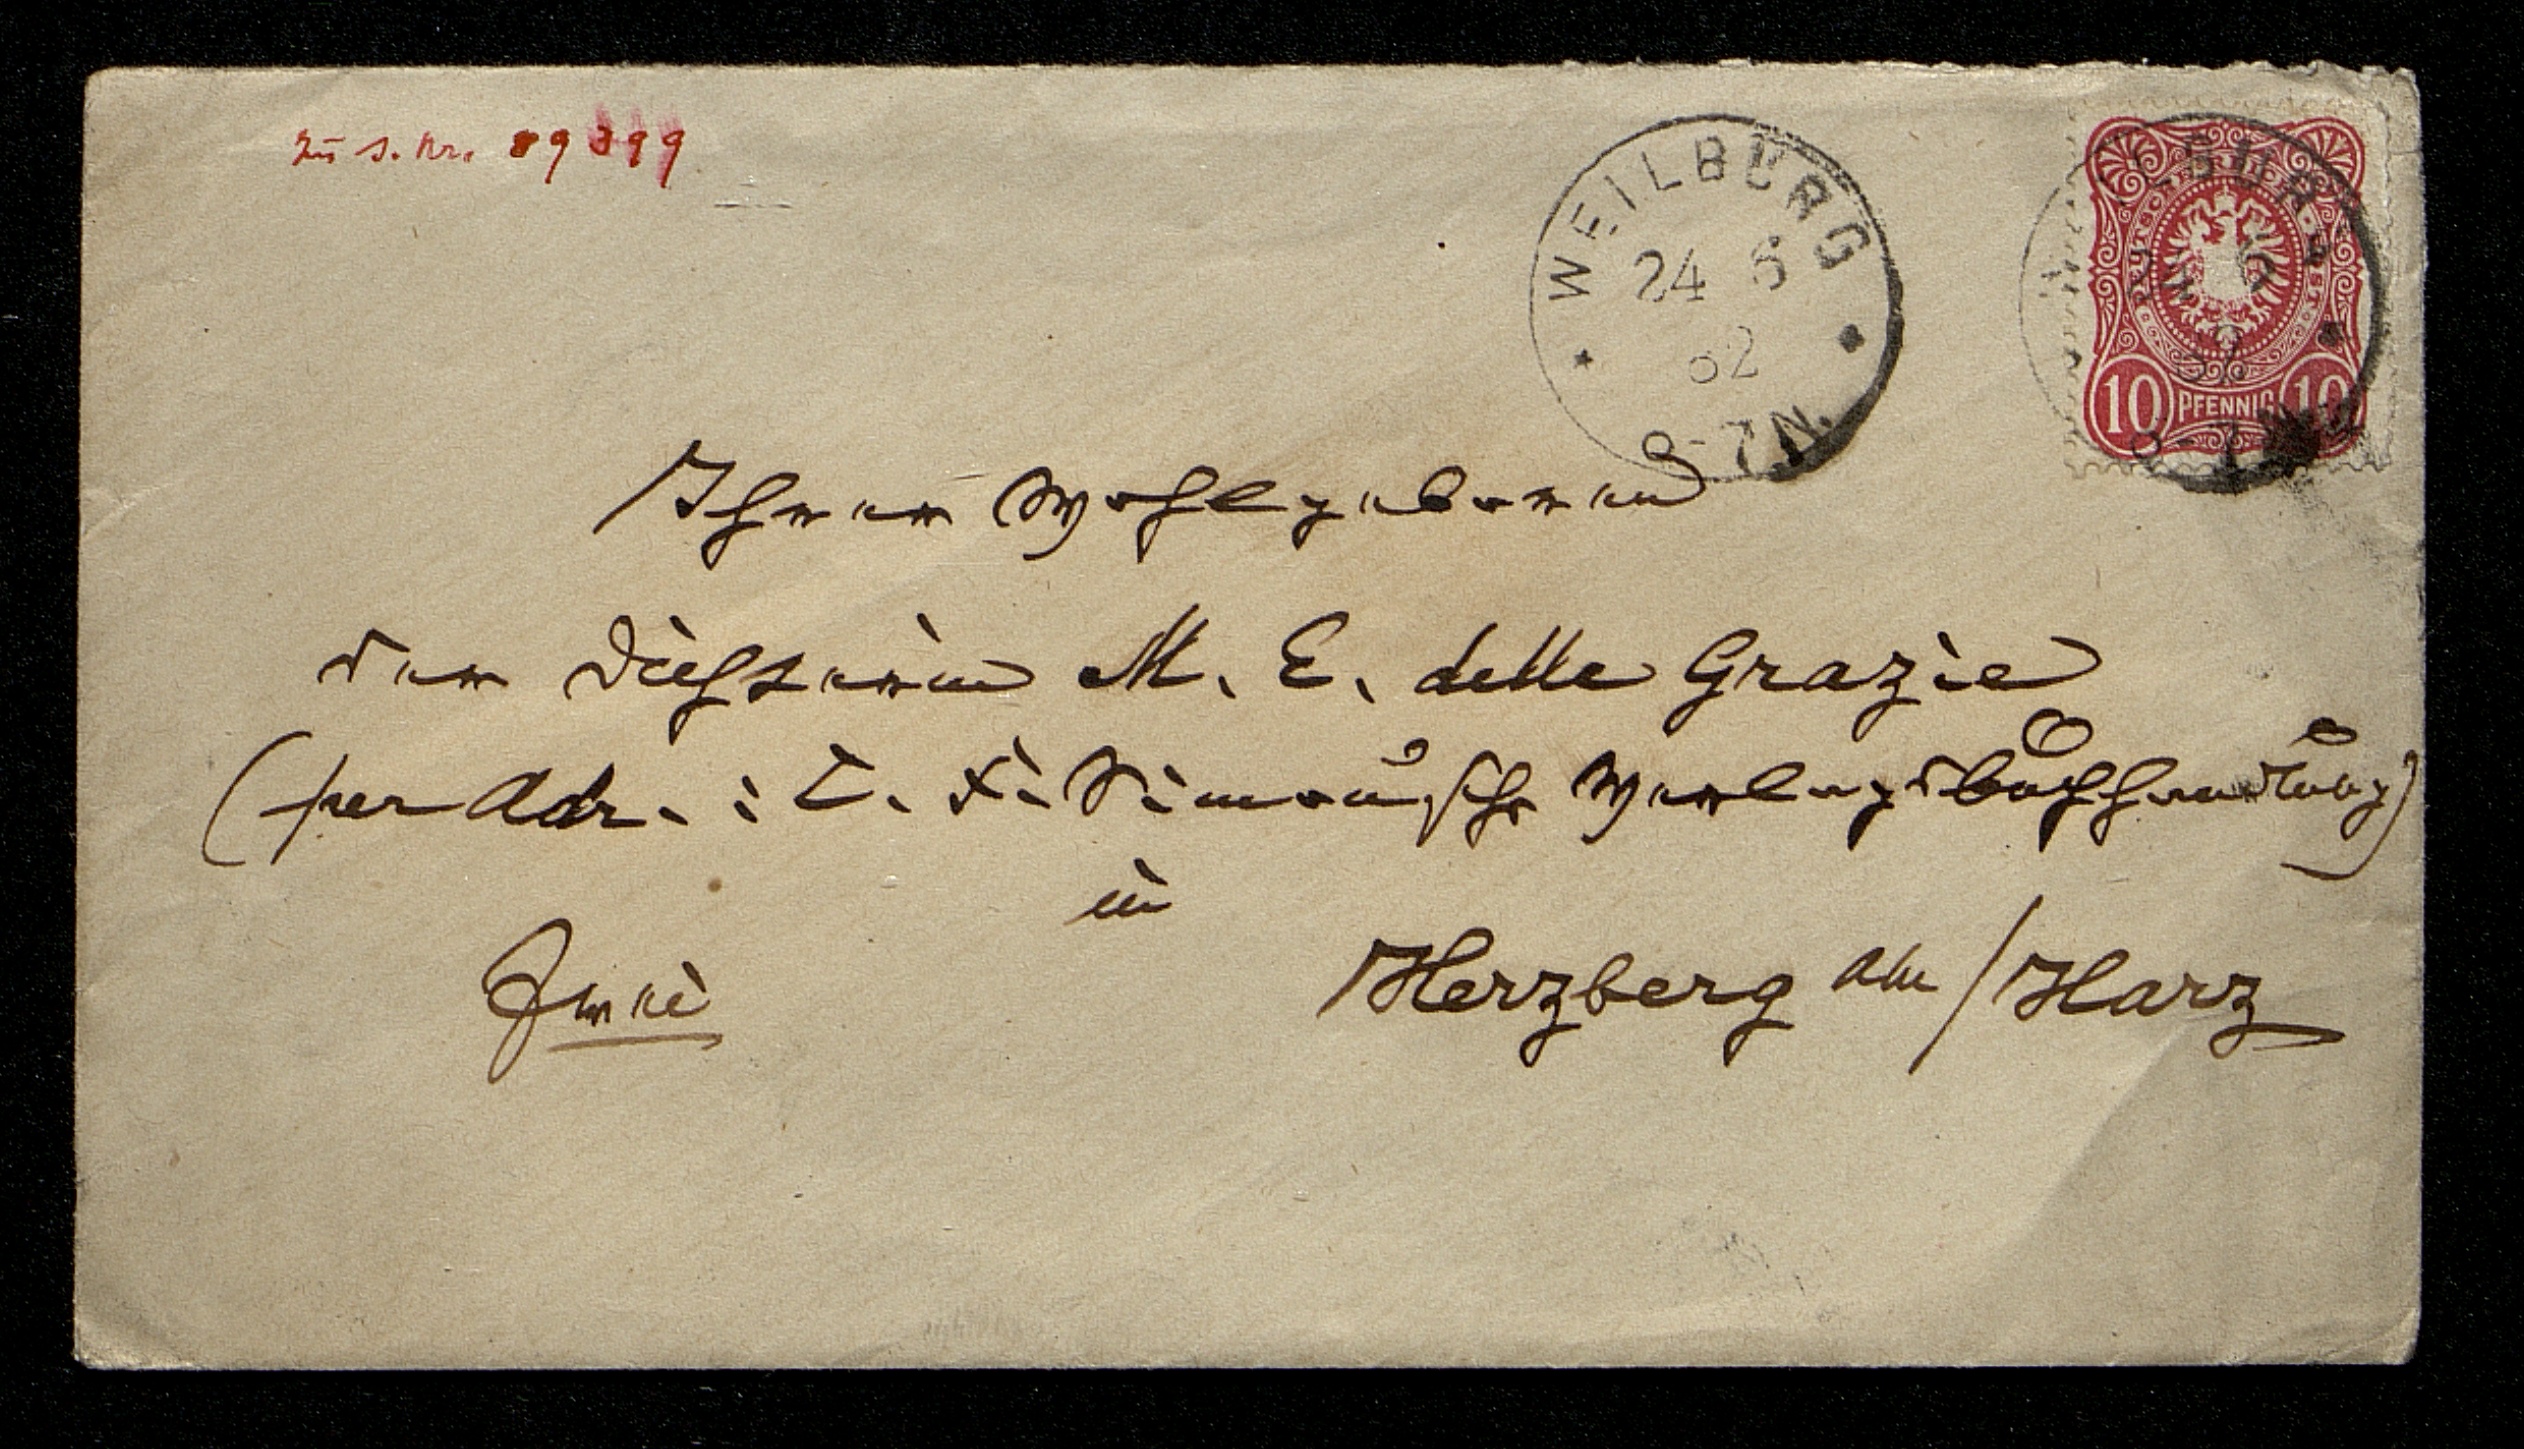 zu J. Nr. 89399
WEILBURG
24 6
82
6-7 N.
DEUTSCHE REICHS-POST
10 PFENNIG 10
Ihrer Wohlgeboren
der Dichterin M. E. delle Grazie
(per Adr. : C. F. Simon'sche Verlagsbuchhandlung)
in
Frei Herzberg am / Harz